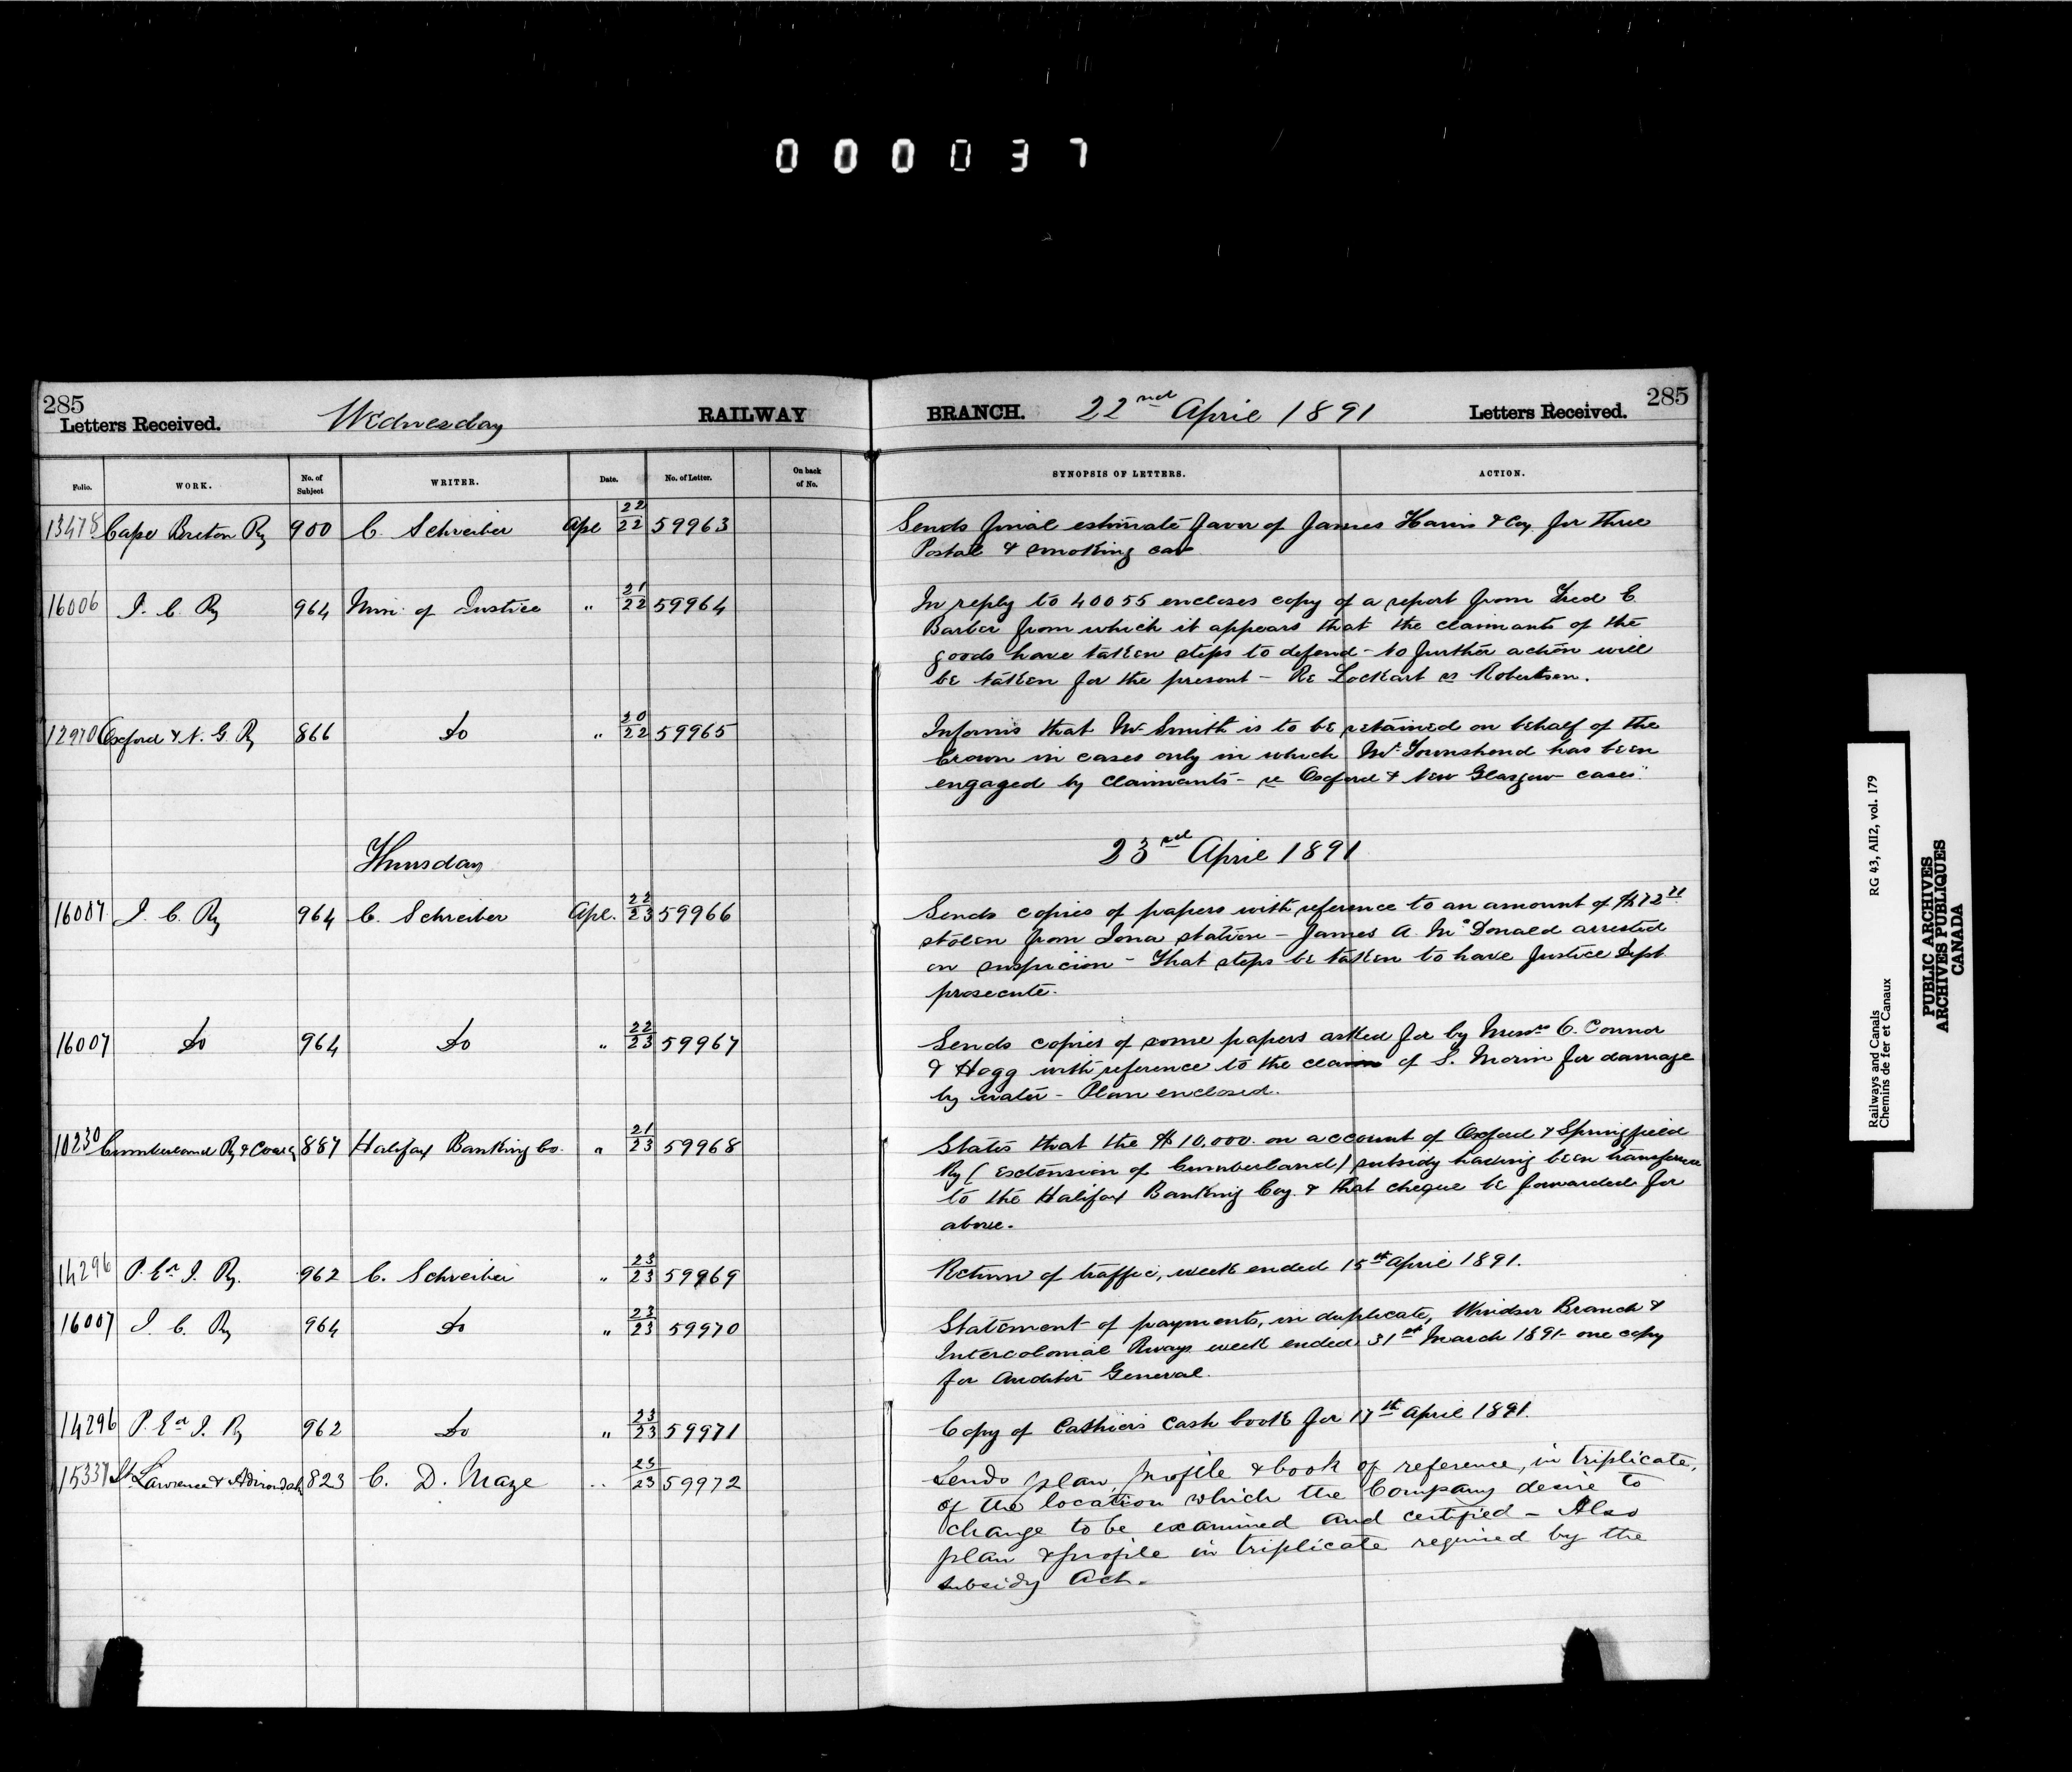 000037
285 285
Letters Received. Wednesday RAILWAY BRANCH. 22nd April 1891 Letters Received.
Folio. WORK. No. of Subject WRITER. Date. No. of Letter. On back of No. SYNOPSIS OF LETTERS. ACTION.
13478 Cape Breton Ry 900 C. Schreiber Apl 22/22 59963 Sends final estimate favor of James Harris & Coy for three
Postal & smoking car
16006 I. C. Ry 964 Min. of Justice " 21/22 59964 In reply to 40055 encloses copy of a report from Fred C.
Barber from which it appears that the claimants of the
goods have taken steps to defend - no further action will
be taken for the present - Re Lockart vs Robertson.
12970 Oxford & N. G. Ry 866 Do " 20/22 59965 Informs that Mr Smith is to be retained on behalf of the
Crown in cases only in which Mr Townshend has been
engaged by claimants - re Oxford & New Glasgow cases.
Thursday 23rd April 1891
16007 I. C. Ry 964 C. Schreiber Apl. 22/23 59966 Sends copies of papers with reference to an amount of
stolen from Iona station - James A. McDonald arrested
on suspicion - That steps be taken to have Justice Dept.
prosecute.
16007 Do 964 Do " 22/23 59967 Sends copies of some papers asked for by Messrs C. Connor
& Hogg with reference to the claim of S. Morin for damage
by water - Plan enclosed.
10230 Cumberland Ry & Coal Cy 887 Halifax Banking Co. " 21/23 59968 States that the $10,000. on account of Oxford & Springfield
Ry (extension of Cumberland) subsidy having been transferred
to the Halifax Banking Coy. & that cheque be forwarded for
above.
14296 P. Ed I. Ry. 962 C. Schreiber " 23/23 59969 Return of traffic, week ended 15th April 1891.
16007 I. C. Ry 964 Do " 23/23 59970 Statement of payments, in duplicate, Windsor Branch &
Intercolonial Rways week ended 31st March 1891 - one copy
for Auditor General.
14296 P. Ed I. Ry 962 Do " 23/23 59971 Copy of Cashiers Cash book for 17th April 1891.
15337 St Lawrence & Adirondak 823 C. D. Maze " 23/23 59972 Sends plan, profile & book of reference, in triplicate,
of the location which the Company desire to
change to be examined and certified - Also
plan & profile in triplicate required by the
subsidy Act.
Railways and Canals RG 43, AII2, vol. 179
Chemins de fer et Canaux
PUBLIC ARCHIVES
ARCHIVES PUBLIQUES
CANADA